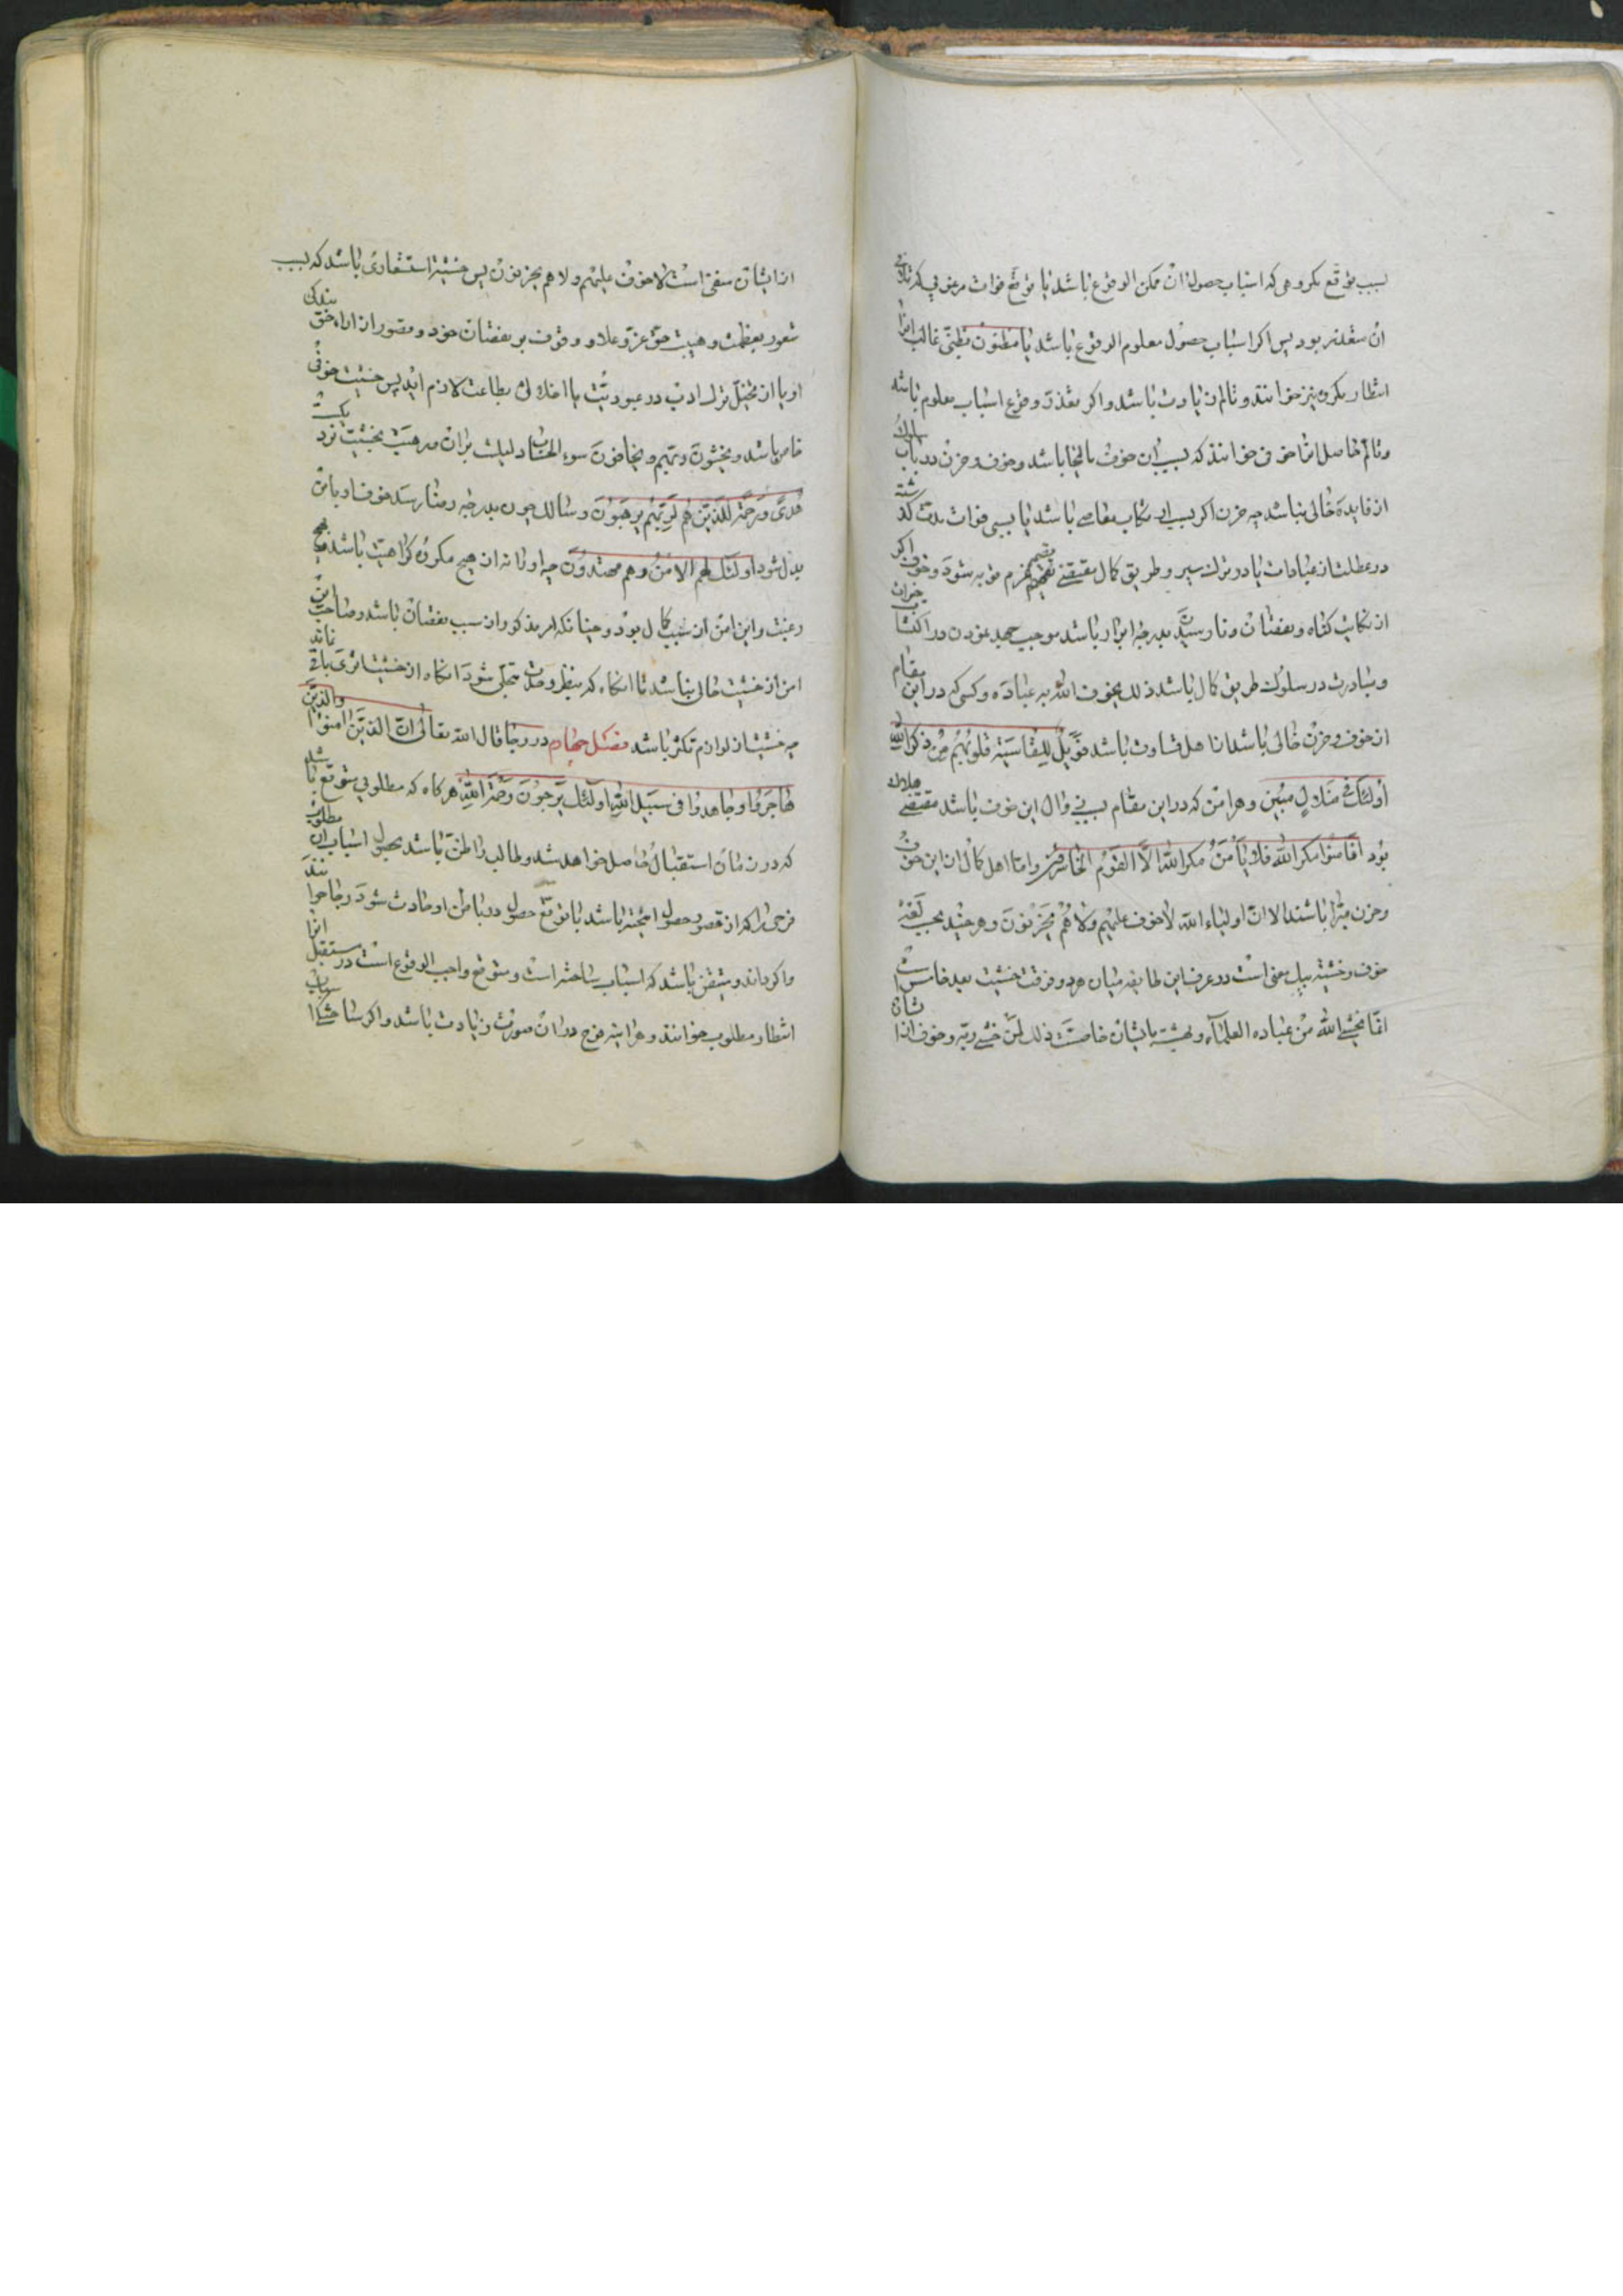 بسبب توقع مکروهی که اسباب حصول آن ممکن الوقوع باشد یا توقع فوات مرغوبی که تلافی
آن متعذر بود پس اگر اسباب حصول معلوم الوقوع باشد یا مظنون بظنی غالب آنرا
انتظار مکروه نیز خوانند و تألم زیادت باشد و اگر تعذر وقوع اسباب معلوم باشد
و تألم حاصل آنرا خوف خوانند که سبب آن خوف مالیخولیا باشد و خوف و حزن در باب سلوک
از فایده خالی نباشد چه حزن اگر بسبب ارتکاب معاصی باشد یا بسبب فوات مدت گذشته
در عطلت از عبادات یا در ترک سیر و طریق کمال مقتضی تصمیم عزم توبه شود و خوف اگر
از ارتکاب گناه و نقصان و نارسیدن بدرجه ابرار باشد موجب جهد نمودن در اکتساب خیرات
و مبادرت در سلوک طریق کمال باشد ذلک یخوف الله به عباده و کسی که در این مقام
از خوف و حزن خالی باشد از اهل قساوت باشد فویل للقاسیة قلوبهم من ذکر الله
اولئک فی ضلال مبین و هر امن که در این مقام بسبب زوال این خوف باشد مقتضی هلاک
بود افامنوا مکر الله فلا یأمن مکر الله الا القوم الخاسرون و اما اهل کمال از این خوف
و حزن مبرا باشند الا ان اولیاء الله لا خوف علیهم ولا هم یحزنون و هر چند بحسب لغت
خوف و خشیة بیک معنی است در عرف این طایفه میان هر دو فرقست خشیت بعلما خاص است
انما یخشی الله من عباده العلماء و بهشت بایشان خاصست ذلک لمن خشی ربه و خوف از ایشان
از ایشان منفی است لا خوف علیهم ولا هم یحزنون پس خشیة استشعاری باشد که بسبب
شعور بعظمت و هیبت حق عز و علا و وقوف بر نقصان خود و قصور از اداء حق بندگی
او یا از تخیل ترک ادب در عبودیت یا اخلال بطاعت لازم آید پس خشیت خوفی
خاص باشد و یخشون ربهم و یخافون سوء الحساب دلیلست بران و رهبت بخشیت نزدیکست
هدی و رحمة للذین هم لربهم یرهبون و سالک چون بدرجه رضا رسد خوف او بامن
بدل شود اولئک لهم الامن و هم مهتدون چه او را نه از هیچ مکروه کراهیت باشد نه بهیچ
رغبت و این امن از سبب کمال بود و چنانکه امر مذکور از سبب نقصان باشد و صاحب این
امن از خشیت خالی نباشد تا آنگاه که بنظر وحدت متحلی شود آنگاه از خشیت اثری باقی نماند
چه خشیت از لوازم تکثر باشد فصل چهارم در رجا قال الله تعالی ان الذین آمنوا والذین
هاجروا و جاهدوا فی سبیل الله اولئک یرجون رحمة الله هرگاه که مطلوبی متوقع باشد
که در زمان استقبال حاصل خواهد شد و طالب را ظن باشد بحصول اسباب آن مطلوب
فرحی را که از تصور حصول آمیخته باشد با توقع حصول در باطن او حادث شود رجا خوانند
و اگر داند و متیقن باشد که اسباب ساخته است و متوقع واجب الوقوع است در مستقبل آنرا
انتظار مطلوب خوانند و هر آینه فرح در ان صورت زیادت باشد و اگر ساختگی اسباب